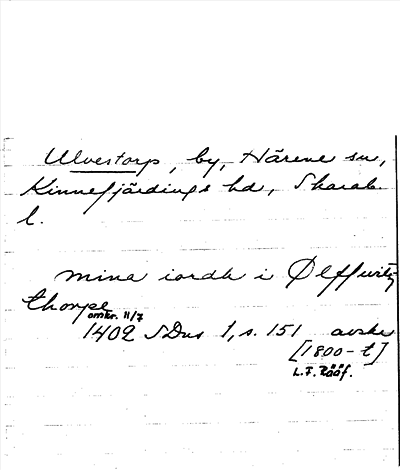 Ulvestorp, by, Härene sn,
Kinnefjärdings hd, Skarab.
l.
mina iordh i Ølffwitz
thorpe
omkr. 11/7
1402 SDns 1, s. 151 avskr
[1800-t]
L.F. Rääf.